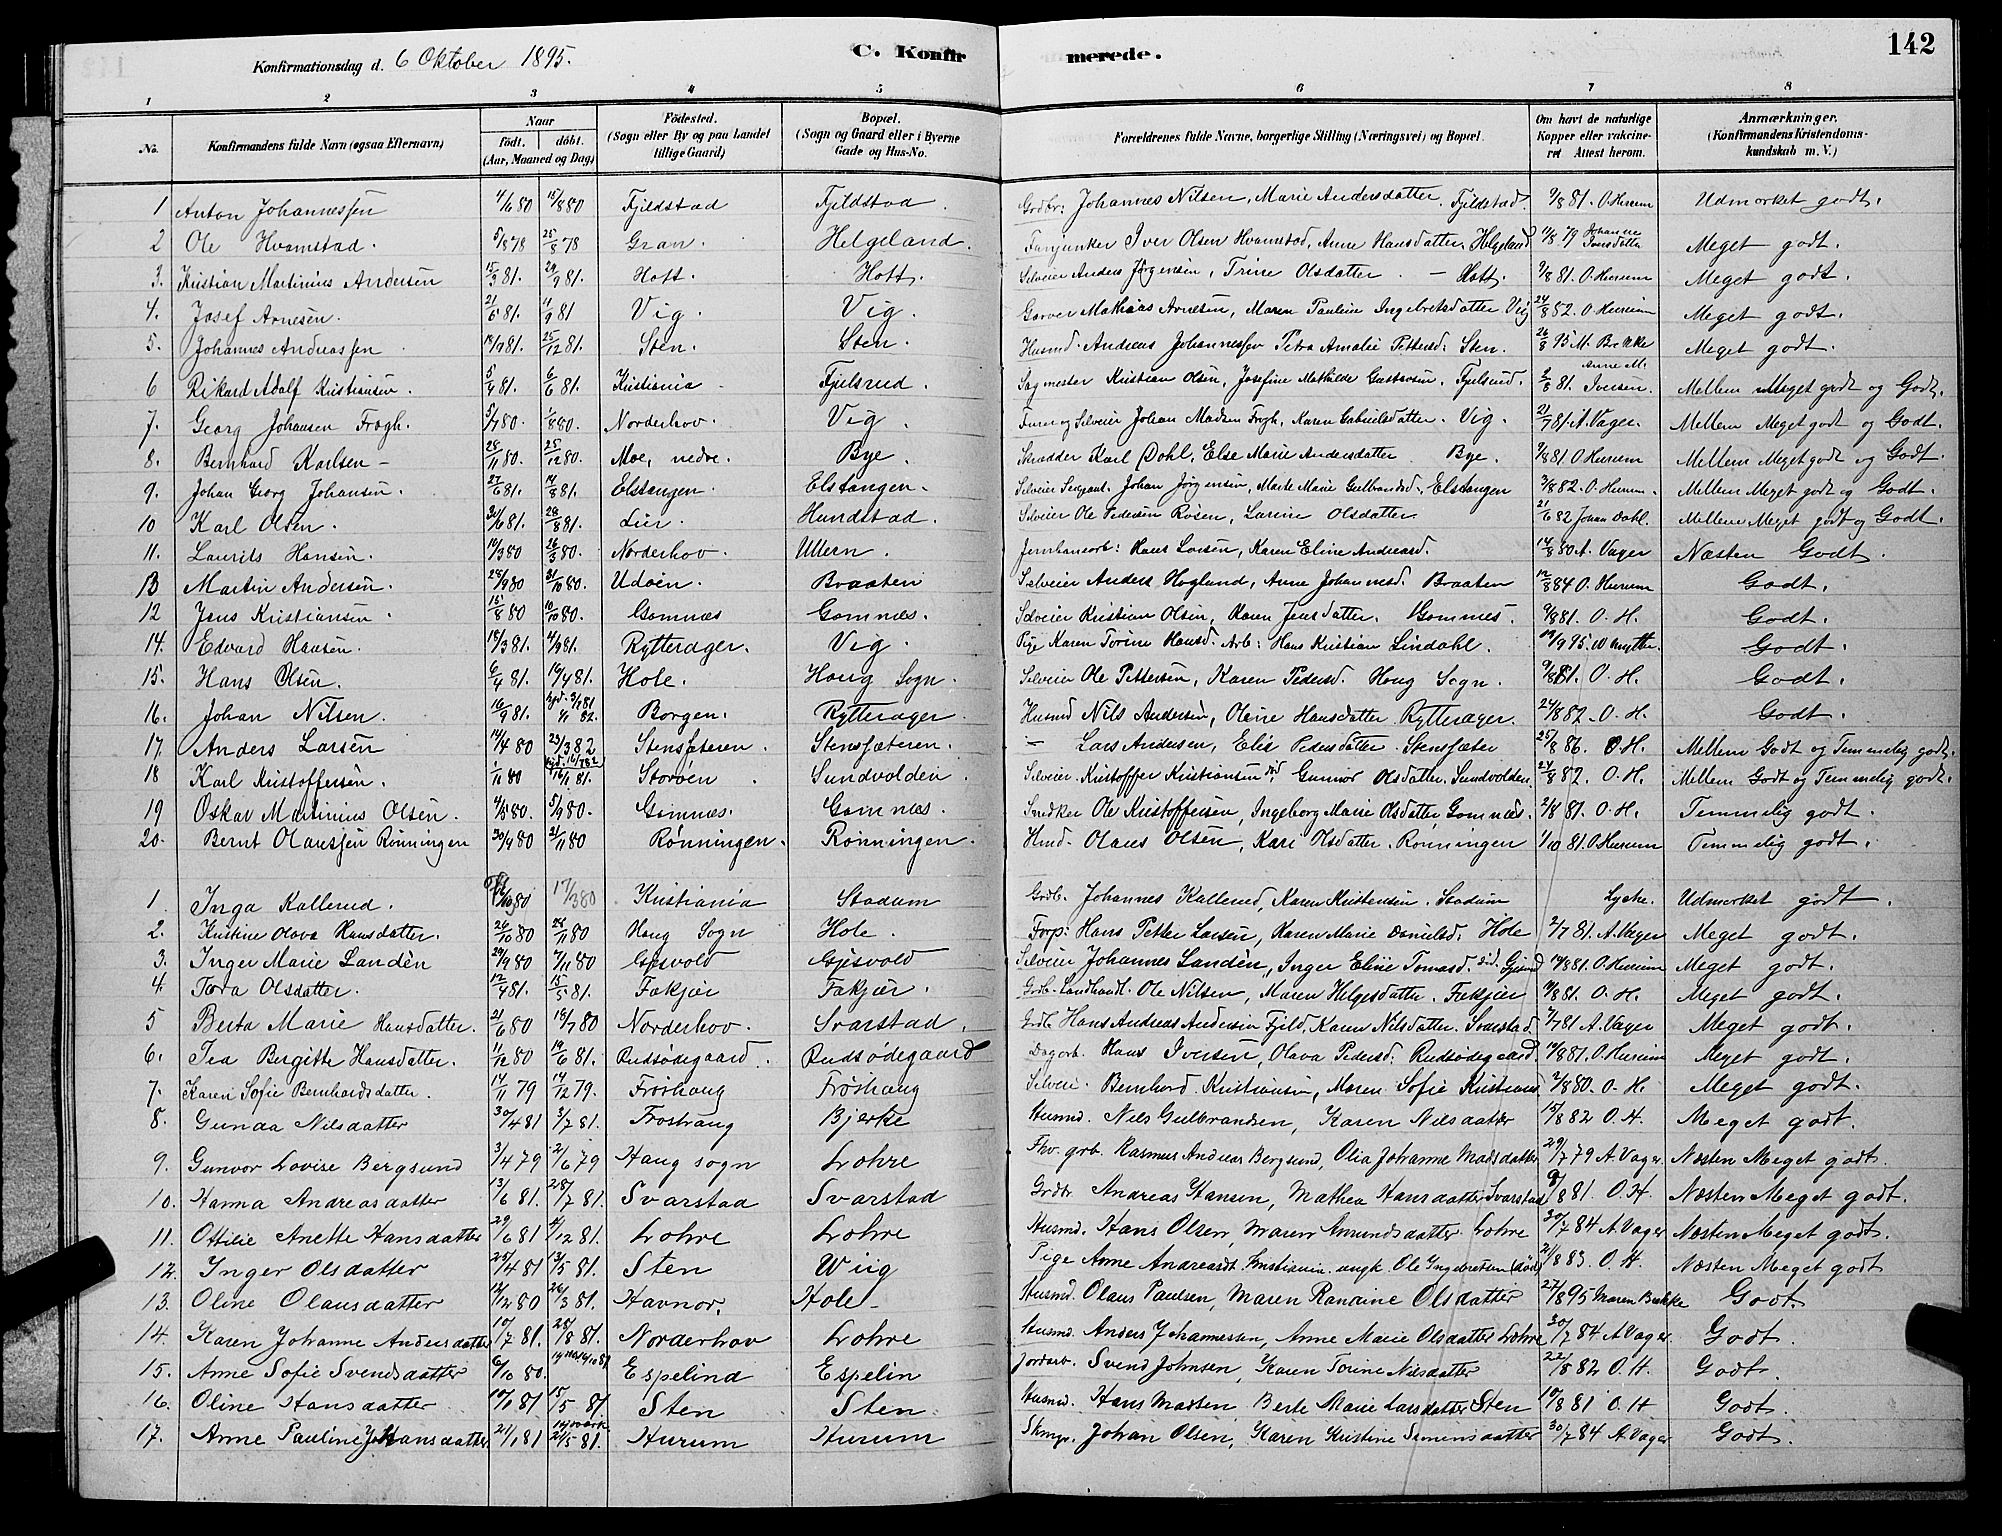 142
Konfirmationsdag d. 6 Oktober 1895. C. Konfirmerede.
1 2 3 4 5 6 7 8
No. Konfirmandens fulde Navn (ogsaa Efternavn) Naar født. døbt. (Aar, Maaned og Dag) Fødested. (Sogn eller By og paa Landet tillige Gaard) Bopæl. (Sogn og Gaard eller i Byerne Gade og Hus-No. Forældrenes fulde Navne, borgerlige Stilling (Næringsvei) og Bopæl. Om havt de naturlige Kopper eller vakcineret Attest herom. Anmærkninger. (Konfirmandens Kristendomskundskab m. V.)
1 Anton Johannessen 4/6 80 15/8 80 Fjeldstad Fjeldstad Grdbr: Johannes Nilsen, Marie Andersdatter. Fjeldstad. 9/8 81. O. Hurum Udmerket godt.
2 Ole Hvamstad. 5/8 78 25/8 78 Gran. Helgeland. Fanjunker Iver Olsen Hvamstad, Anne Hansdatter. Helgeland 11/8 79 Johanne Meget godt.
3. Kristian Martinius Andersen 15/3 81. 29/9 81. Hott. Hott. Selveier Anders Jørgensen, Trine Olsdatter. - Hott. 9/8 81. O. Hurum Meget godt.
4. Josef Arnesen. 21/6 81. 11/9 81 Vig. Vig. Garver Mathias Arnesen, Maren Pauline Ingebretsdatter Vig 24/8 82. O Hurum Meget godt.
5. Johannes Andreassen 81. 25/12 81. Sten. Sten. Husmd. Andreas Johannessen Petra Amalie Pettersd. Sten. 26/8 95 M. Brække Meget godt.
6 Rikard Adolf Kristiansen. 5/4 81. 6/6 81. Kristiania Fjelsrud. Sagmester Kristian Olsen, Josefine Mathilde Gustavsen. Fjelsrud. 2/8 81. Anne M. Iversen. Mellem Meget godt og Godt.
7. Georg Johansen Frøgh. 5/7 80. 1/8 80. Norderhov. Vig. Furer og Selveier Johan Madsen Frøgh, Karen Gabrielsdatter. Vig. 21/7 81. A. Vager. Mellem Meget godt og Godt.
8. Bernhard Karlsen - 28/11 80. 25/12 80. Moe, nedre. Bye. Skrædder Karl Dahl, Else Marie Andersdatter Bye. 9/8 81 O Hurum Mellem Meget godt og Godt.
9. Johan Georg Johansen. 27/6 81. 14/8 81. Elstangen. Elstangen. Selveier Sergant. Johan Jørgensen, Marte Marie Gulbrandsd. Elstangen 3/8 82. O. Hurum. Mellem Meget godt og Godt.
10 Karl Olsen. 30/6 81. 28/8 81. Lir. Hundstad. Selveier Ole Pedersen Rosen, Larine Olsdatter 21/6 82 Johan Dahl. Mellem Meget godt og Godt.
11. Laurits Hansen. 10/3 80 26/3 80. Norderhov. Ullern. Jernbanearb: Hans Larsen, Karen Eline Andreasd. 14/8 80 A. Vager Næsten Godt.
13 Martin Andersen. 28/9 80 31/10 80. Udøen. Braaten Selveier Anders Hoglund, Anne Johannesd. Braaten 12/8 84 O. Hurum Godt.
12 Jens Kristiansen. 15/8 80 10/10 80. Gomnæs Gomnæs. Selveier Kristian Olsen, Karen Jensdatter. Gomnæs. 9/8 81. O. H. Godt.
14. Edvard Hansen. 18/3 81. 4/9 81. Rytterager. Vig. Pige Karen Torine Hansd. Arb: Hans Kristian Lindahl. 19/9 95. Godt.
15. Hans Olsen. 6/4 81. 19/4 81. Hole. Houg Sogn. Selveier Ole Pettersen, Karen Pedersd. Houg Sogn. 9/8 81. O. H. Godt.
16. Johan Nilsen. 16/9 81. 1/1 82. Borgen. Rytterager. Husmd Nils Andersen, Oline Hansdatter. Rytterager. 24/8 82. O. H. Godt.
17. Anders Larsen 14/4 80 23/3 82 Stensfæteren. Stensfæteren. - Lars Andersen, Elie Pedersdatter. Stensfæter 25/8 86. O. H. Mellem Godt og Temmelig godt.
18 Karl Kristoffersen. 1/11 80 16/1 81. Storøen. Sundvolden. Selveier. Kristoffer Kristiansen død, Gunnor Olsdatter. Sundvolden. 24/8 82. O. H. Mellem Godt og Temmelig godt.
19 Oskar Martinius Olsen. 4/8 80. 5/9 80. Gomnæs. Gomnæs. Snedker Ole Kristoffersen, Ingeborg Marie Olsdatter Gomnæs. 2/8 81. O. H. Temmelig godt.
20. Bernt Olaussen Rønningen 30/9 80 21/11 80 Rønningen. Rønningen. Hmd. Olaus Olsen, Kari Olsdatter. Rønningen 1/10 81. O. Hurum Temmelig godt.
1. Inga Kallerud. 80 17/3 80 Kristiania Stadum Grdb. Johannes Kallerud, Karen Kristensen. Stadum Lyche. Udmerket godt.
2. Kristine Olava Hansdatter. 26/10 80 28/11 80 Houg Sogn Hole. Forp: Hans Petter Larsen, Karen Marie Danielsd. Hole 2/7 81. A. Vager Meget godt.
3. Inger Marie Landén 29/9 80 7/11 80 Gjesvold Gjesvold Selveier Johannes Landén, Inger Eline Tomasd. 19/8 81. O. Hurum Meget godt.
4. Tora Olsdatter. 12/4 81. 15/5 81. Fækjær Fækjær. Grdb. Landhandl. Ole Nilsen, Maren Helgesdatter. Fækjær 19/8 81. O. H. Meget godt.
5 Berta Marie Hansdatter. 21/6 80 18/7 80 Norderhov. Svarstad. Grdb Hans Andreas Andersen Fjeld, Karen Nilsdatter. Svarstad. 2/7 81 A. Vager Meget godt.
6. Tea Bergitte Hansdatter. 11/12 80 19/6 81. Rudsødegaard. Rudsødegaard Dagarb. Hans Iversen, Olava Pedersd. Rudsødegaard. 19/8 81. O. Hurum Meget godt.
7. Karen Sofie Bernhardsdatter. 14/11 79 14/12 79. Frøshaug Frøshaug Selveier. Bernhard Kristiansen, Maren Sofie Kristians 2/8 80. O. H. Meget godt.
8. Gunda Nilsdatter 30/4 81 3/7 81. Frøshaug Bjerke Husmd. Nils Gulbrandsen, Karen Nilsdatter 15/8 82 O. H. Meget godt.
9. Gunvor Lovise Bergsund 3/4 79 2/6 79 Haug sogn Lohre Fhv. grb. Rasmus Andreas Bergsund, Olia Johanne Madsdatter 29/7 79 A Vager. Næsten Meget godt.
10. Hanna Andreasdatter 13/6 81. 28/7 81. Svarstad Svarstad Grdbr. Andreas Hansen, Mathea Hansdatter Svarstad 9/8 81. O. H. Næsten Meget godt.
11. Ottilie Anette Hansdatter 29/6 81 4/12 81. Lohre Lohre Husmd. Hans Olsen, Maren Amundsdatter Lohre 30/7 84 A Vager Næsten Meget godt.
12. Inger Olsdatter 25/4 81 13/5 81. Sten Wiig Pige Anne Andreasdt. Kristiania. ungk. Ole Ingebretsen (død) 2/8 83. O. H. Næsten Meget godt
13. Oline Olausdatter 12/12 80 26/3 81. Havnor. Hole - Husmd. Olaus Paulsen, Maren Randine Olsdatter 27/8 95 Maren Brække Godt.
14. Karen Johanne Andersdatter 10/7 81. 28/8 81. Norderhov Lohre Husmd. Anders Johannesen, Anne Marie Olsdatter Lohre 30/7 84 A Vager Godt.
15. Anne Sofie Svendsdatter 6/10 80. Espelind Espelin Jordarb. Svend Johnsen, Karen Torine Nilsdatter 22/8 82 O. H. Godt.
16. Oline Hansdatter 10/1 81 15/5 81 Sten Sten Husmd. Hans Madsen, Berte Marie Larsdatter Sten 10/8 81 O. H Godt.
17. Anne Pauline Johansdatter. 21/1 81 21/5 81. Hurum Hurum Johan Olsen, Karen Kristine Simensdatter 30/7 84 A. Vager Godt.